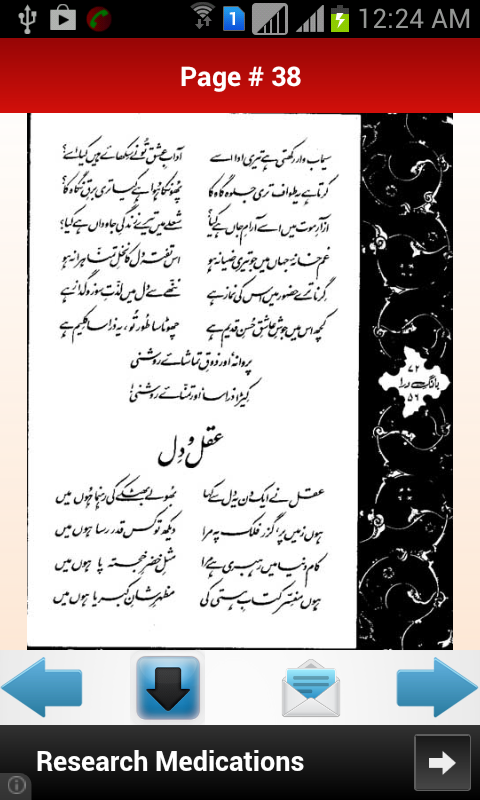 12:24 AM
1
Page # 38
سیماب وار رکھتی ہے تیری ادا اسے آدابِ عشق تُو نے سکھائے ہیں کیا اسے؟
کرتا ہے یہ طواف تری جلوہ گاہ کا پھُونکا ہوا ہے کیا تری برقِ نگاہ کا؟
آزارِ موت میں اسے آرامِ جاں ہے کیا؟ شعلے میں تیرے زندگیِ جاوداں ہے کیا؟
غم خانۂ جہاں میں جو تیری ضیا نہ ہو اس تفتہ دل کا نخلِ تمنّا ہرا نہ ہو
گِرنا ترے حضور میں اس کی نماز ہے ننھّے سے دل میں لذّتِ سوز و گداز ہے
کچھ اس میں جوشِ عاشقِ حُسنِ قدیم ہے چھوٹا سا طُور تُو، یہ ذرا سا کلیم ہے
پروانہ، اور ذوقِ تماشائے روشنی
کیڑا ذرا سا، اور تمنّائے روشنی!
۷۲
بانگِ درا
۵۶
عقل و دِل
عقل نے ایک دن یہ دل سے کہا بھُولے بھٹکے کی رہنما ہُوں میں
ہوں زمیں پر، گزر فلک پہ مرا دیکھ تو کس قدر رسا ہوں میں
کام دنیا میں رہبری ہے مرا مثلِ خضرِ خجستہ پا ہوں میں
ہوں مفسّر کتابِ ہستی کی مظہرِ شانِ کبریا ہوں میں
Research Medications